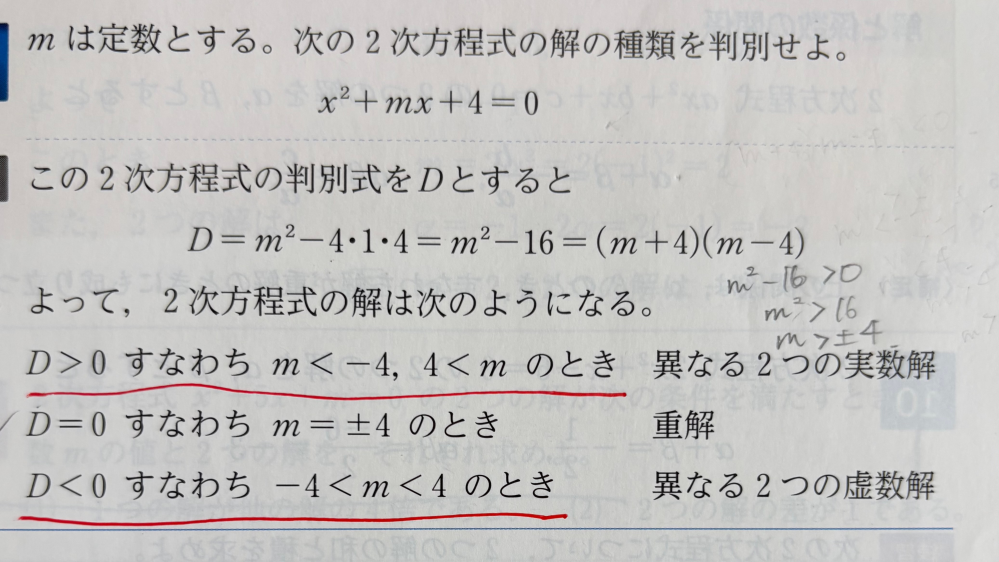 mは定数とする。次の2次方程式の解の種類を判別せよ。
x²+mx+4=0
この2次方程式の判別式をDとすると
D=m²-4・1・4=m²-16=(m+4)(m-4)
m²-16>0
よって，2次方程式の解は次のようになる。
m²>16
m>±4
D>0 すなわち m<-4, 4<m のとき 異なる2つの実数解
D=0 すなわち m=±4 のとき 重解
D<0 すなわち -4<m<4 のとき 異なる2つの虚数解